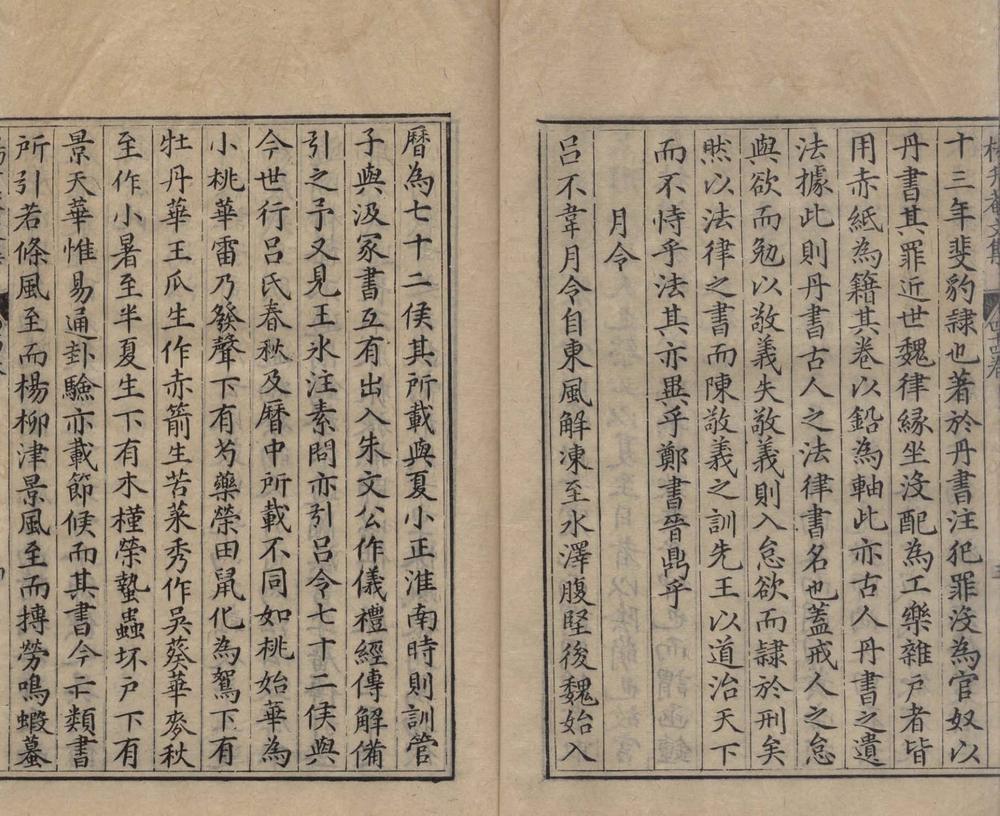 十三年斐豹隸也著於丹書注犯罪沒為官奴以
丹書其罪近世魏律緣坐沒配為工樂雜户者皆
用赤紙為籍其卷以鉛為軸此亦古人丹書之遺
法據此則丹書古人之法律書名也蓋戒人之怠
與欲而勉以敬義失敬義則入怠欲而隸於刑矣
然以法律之書而陳敬義之訓先王以道治天下
而不恃乎法其亦異乎鄭書晉鼎乎
月令
呂不韋月令自東風解凍至水澤腹堅後魏始入
曆為七十二侯其所載與夏小正淮南時則訓管
子與汲冢書互有出入朱文公作儀禮經傳解備
引之予又見王氷注素問亦引呂令七十二侯與
今世行呂氏春秋及曆中所載不同如桃始華為
小桃華雷乃發聲下有芍藥榮田鼠化為鴽下有
牡丹華王瓜生作赤箭生苦菜秀作吳葵華麥秋
至作小暑至半夏生下有木槿榮蟄蟲坏户下有
景天華惟易通卦驗亦載節候而其書今亡類書
所引若條風至而楊柳津景風至而搏勞鳴蝦蟇